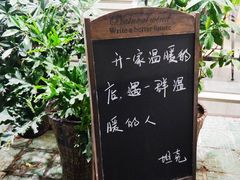 Write a better future
开一家温暖的
店，遇一群温
暖的人
坦克